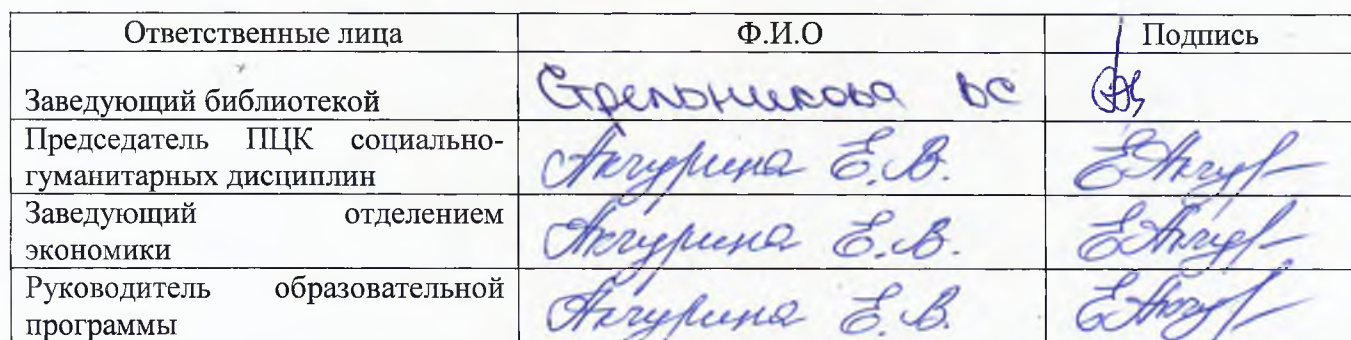 Ответственные лица Ф.И.О Подпись
Заведующий библиотекой Стрельникова ВС
Председатель ПЦК социально-
гуманитарных дисциплин Акчурина Е.В.
Заведующий отделением
экономики Акчурина Е.В.
Руководитель образовательной
программы Акчурина Е.В.